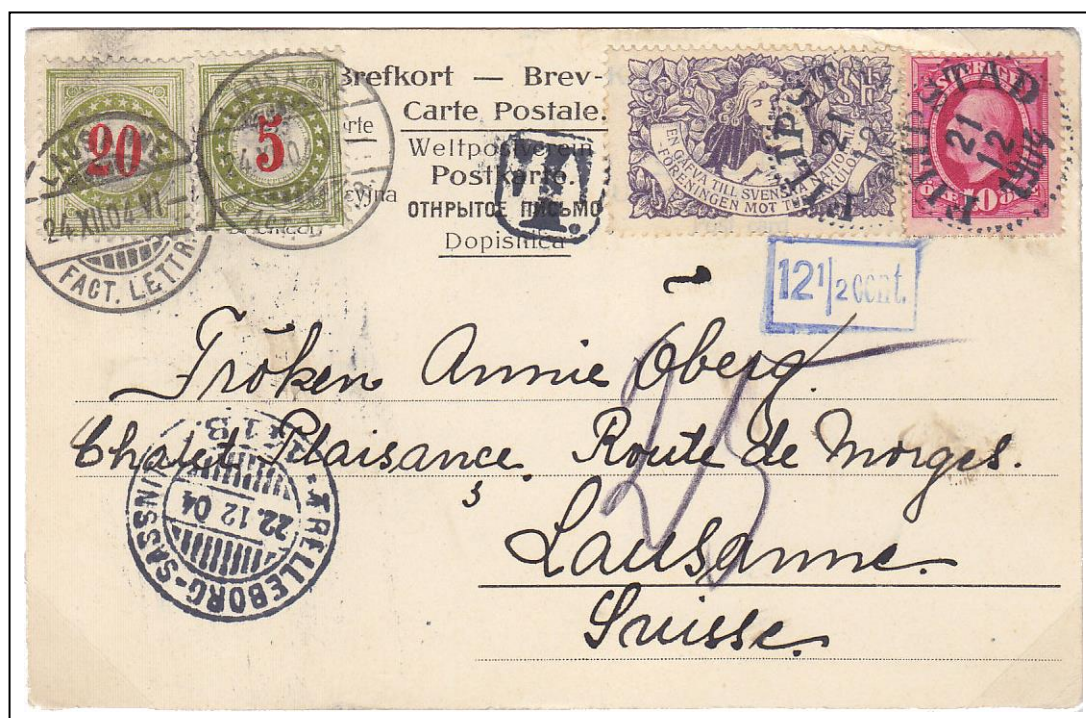 20
5
LAUSANNE
24.XII.04.VI
FACT. LETTR.
Brefkort — Brev-
Carte Postale.
Weltpostverein
Postkarte.
ОТНРЫТОЕ ПИСЬМО
Dopisnica
T.
EN GÅFVA TILL SVENSKA NATIONAL
FÖRENINGEN MOT TUBERKULOS
FILIPSTAD
21
12
1904
10
12 1/2 cent.
25
Fröken Annie Öberg.
Chalet Plaisance, Route de Morges.
Lausanne.
Suisse.
TRELLEBORG-SASSNI
22.12 04